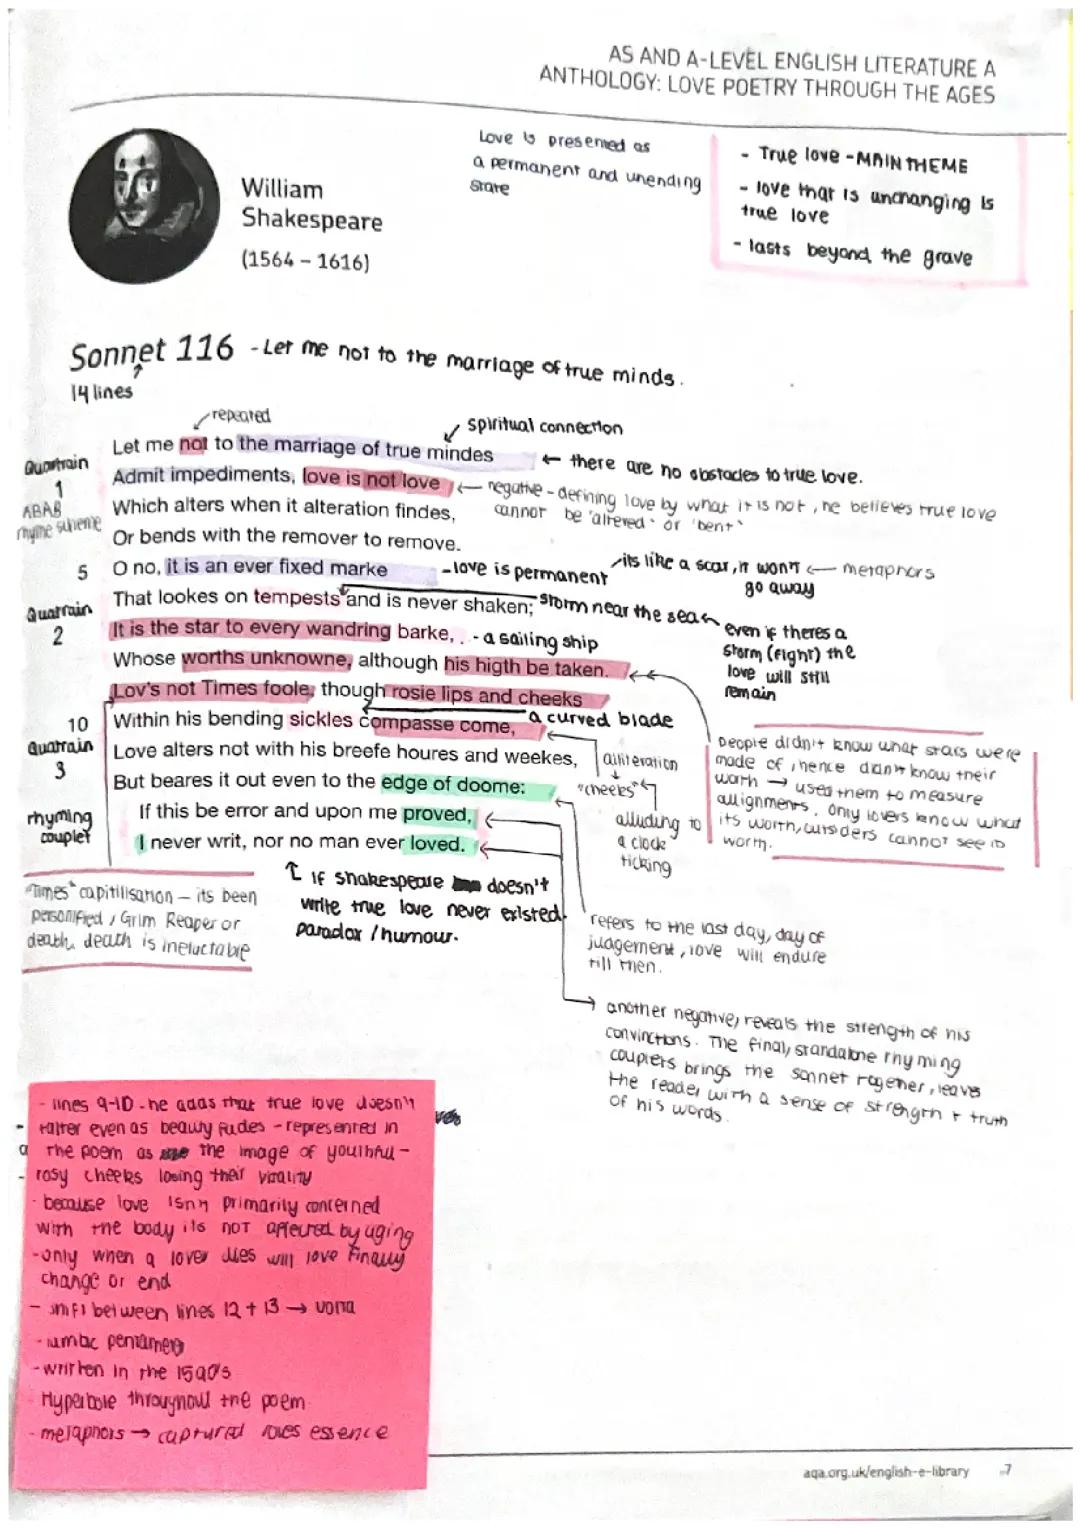 AS AND A-LEVEL ENGLISH LITERATURE A
ANTHOLOGY: LOVE POETRY THROUGH THE AGES
William
Shakespeare
(1564 – 1616)
Love is presented as
a permanent and unending
state
- True love - MAIN THEME
- love that is unchanging is
true love
- lasts beyond the grave
Sonnet 116 - Let me not to the marriage of true minds.
14 lines
repeated
spiritual connection
Quartrain
1
ABAB
rhyme scheme
Let me not to the marriage of true mindes
← there are no obstacles to true love.
Admit impediments, love is not love
← negative - defining love by what it is not, he believes true love
cannot be 'altered' or 'bent'
Which alters when it alteration findes,
Or bends with the remover to remove.
5 O no, it is an ever fixed marke
- love is permanent
its like a scar, it won't
go away
← metaphors
Quatrain
2
That lookes on tempests and is never shaken;
storm near the sea
even if theres a
storm (fight) the
love will still
remain
It is the star to every wandring barke,
- a sailing ship
Whose worths unknowne, although his higth be taken.
Lov's not Times foole, though rosie lips and cheeks
10 Within his bending sickles compasse come,
a curved blade
Quatrain
3
Love alters not with his breefe houres and weekes,
But beares it out even to the edge of doome:
alliteration
"cheeks"
alluding to
a clock
ticking
People didn't know what stars were
made of, hence didn't know their
worth → used them to measure
allignments. Only lovers know what
its worth, outsiders cannot see is
worth.
rhyming
couplet
If this be error and upon me proved,
I never writ, nor no man ever loved.
"Times" capitilisation – its been
personified, Grim Reaper or
death, death is ineluctable
If shakespeare doesn't
write true love never existed.
paradox / humour.
refers to the last day, day of
judgement, love will endure
till then.
→ another negative, reveals the strength of his
convinctions. The final, standalone rhyming
couplets brings the sonnet together, leaves
the reader with a sense of strength + truth
of his words.
- lines 9-10 - he adds that true love doesn't
falter even as beauty fades - represented in
the poem as the image of youthful -
rosy cheeks losing their vitality
- because love isn't primarily concerned
with the body its not affected by aging
- only when a lover dies will love finally
change or end
- shift between lines 12 + 13 → volta
- iambic pentameter
- written in the 1590's
- Hyperbole throughout the poem
- metaphors → captured loves essence
aqa.org.uk/english-e-library
7